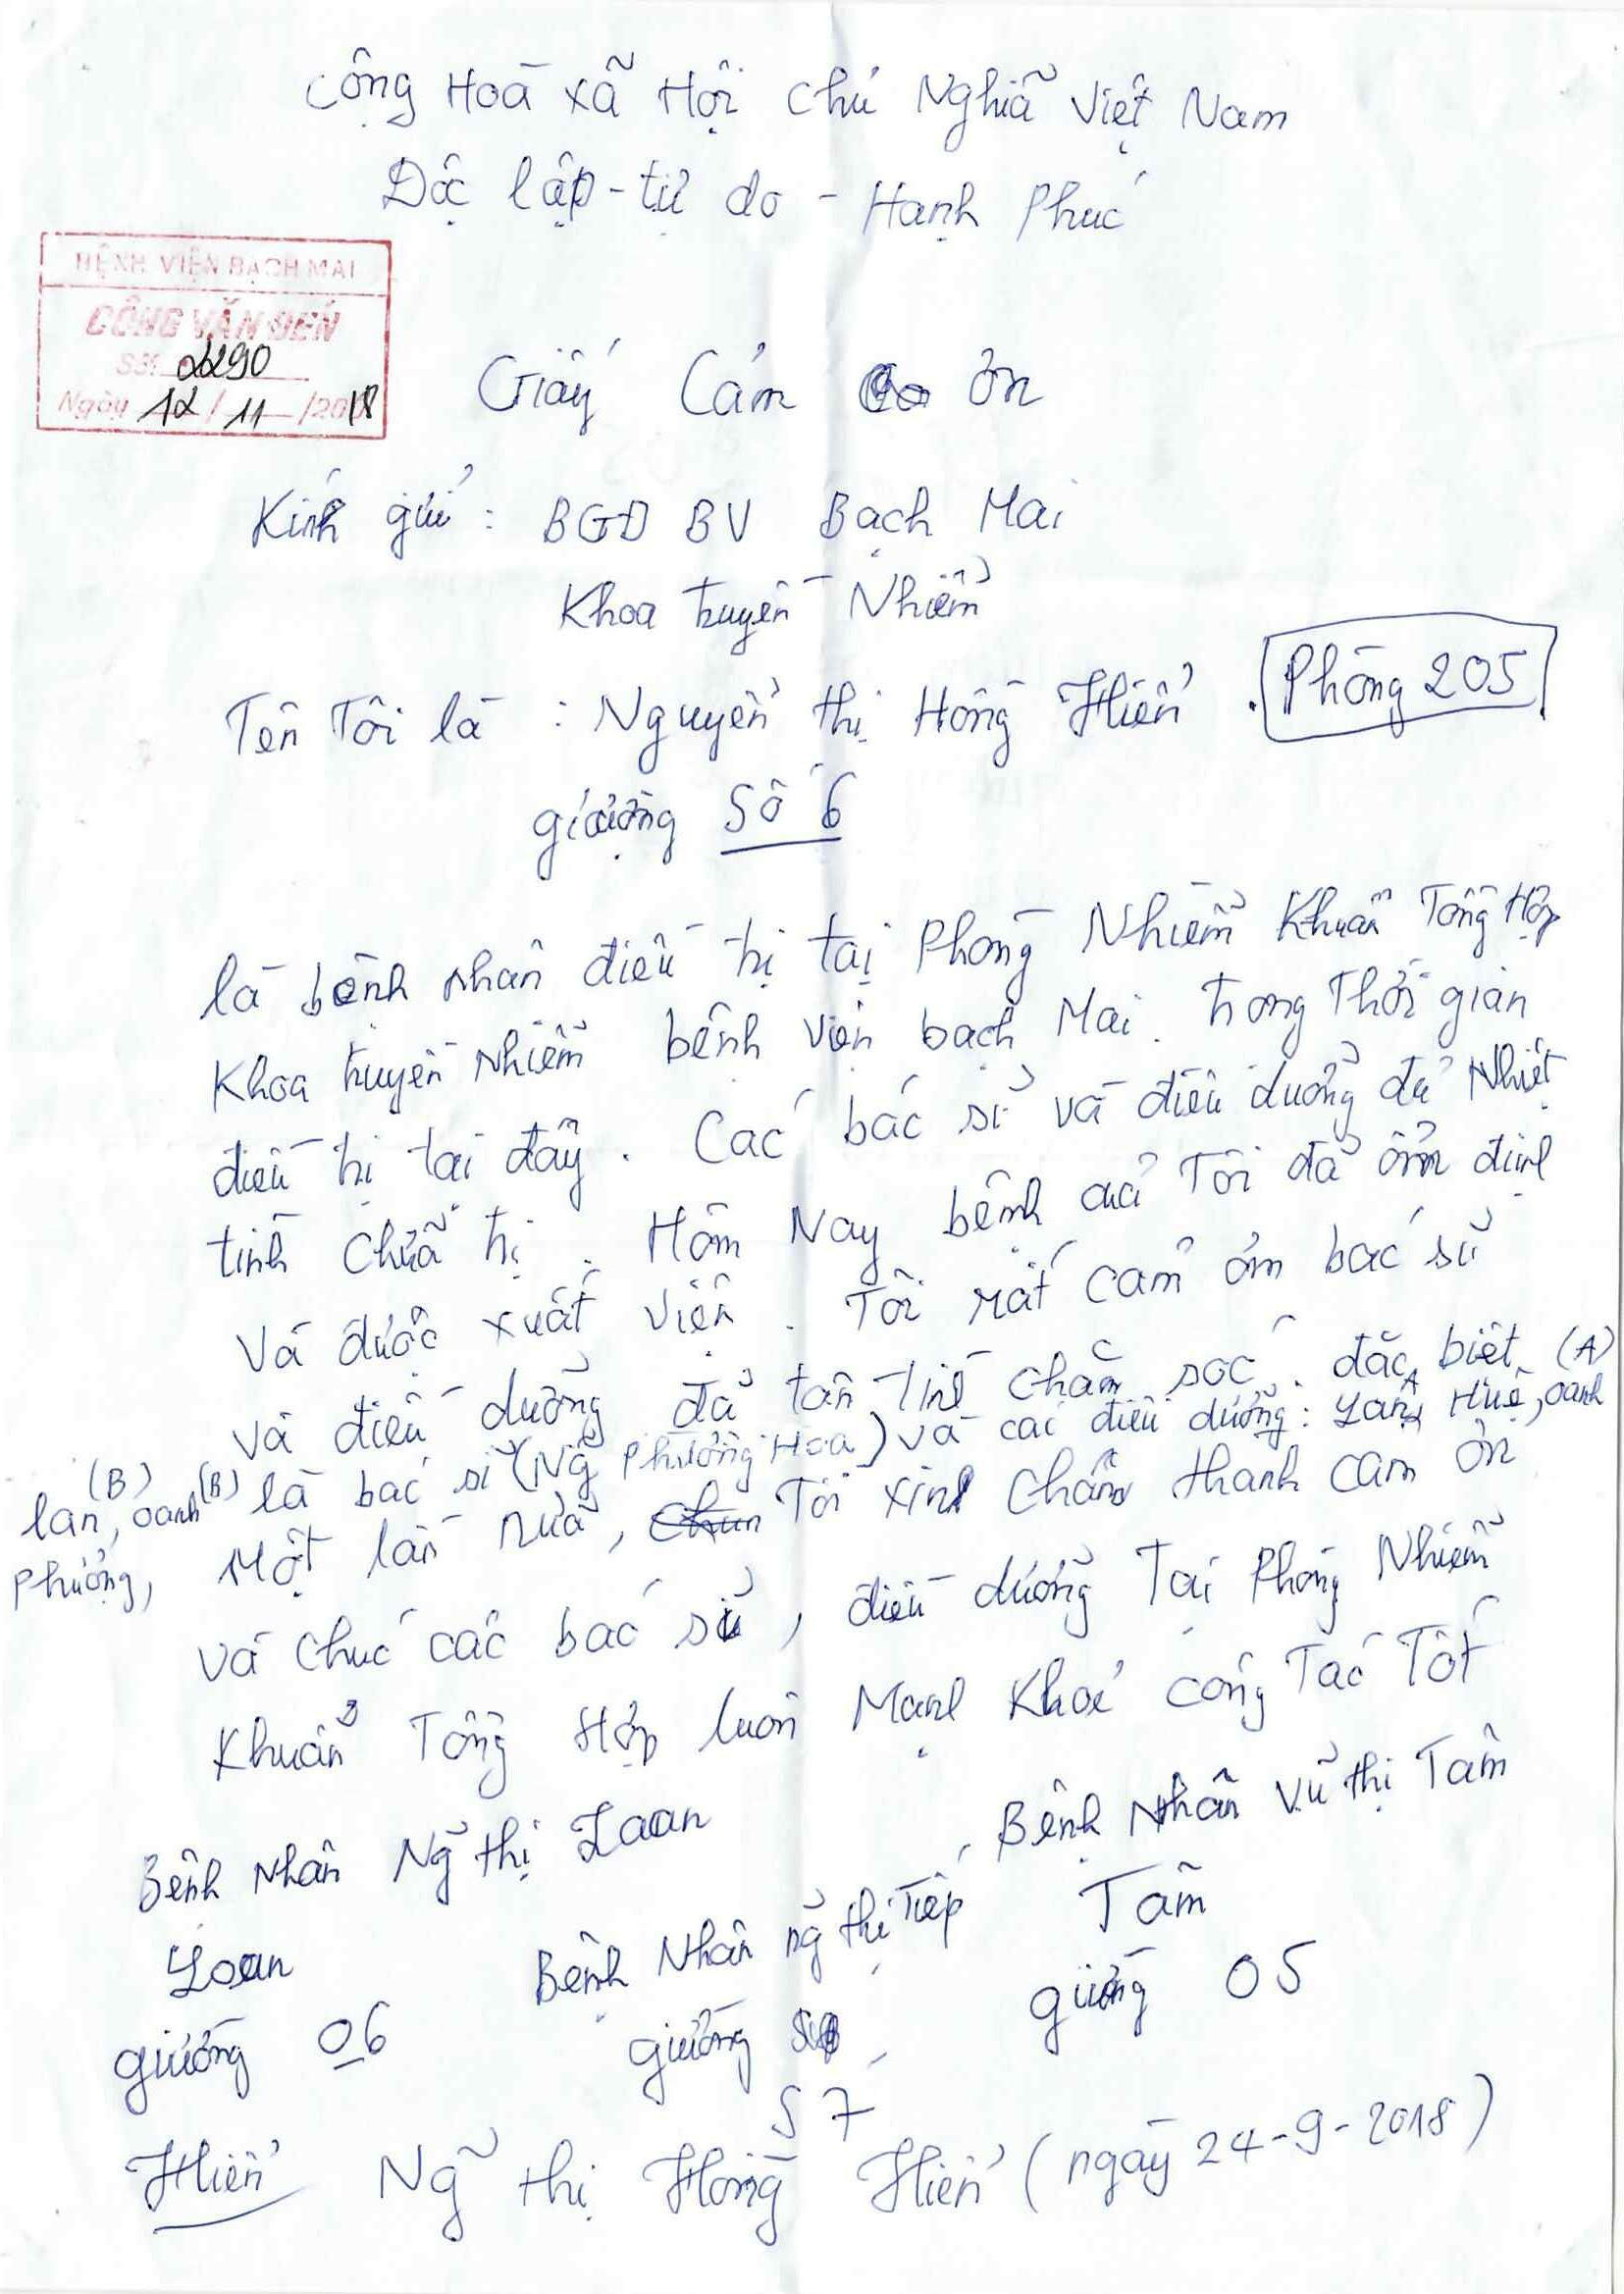 Cộng Hoà xã Hội chủ Nghĩa Việt Nam
Độc lập - tự do - Hạnh Phúc
BỆNH VIỆN BẠCH MAI
CÔNG VĂN ĐẾN
Số: 2290
Ngày 12/11/2018
Giấy Cảm ơn
Kính gửi : BGĐ BV Bạch Mai
Khoa truyền Nhiễm
Tên Tôi là : Nguyễn thị Hồng Hiển . Phòng 205
giường Số 6
là bệnh nhân điều trị tại Phòng Nhiễm Khuẩn Tổng Hợp
Khoa truyền Nhiễm bệnh viện bạch Mai. trong Thời gian
điều trị tại đây . Các bác sĩ và điều dưỡng đã Nhiệt
tình chữa trị . Hôm Nay bệnh của Tôi đã ổn định
và được xuất viện . Tôi rất cảm ơn bác sĩ
và điều dưỡng đã tận tình chăm sóc . đặc biệt
là bác sĩ (Ng̃ Phương Hoa) và các điều dưỡng : Lan (A), Huệ, oanh
lan (B), oanh (B)
Phương,
Một lần nữa, Tôi xin chân thành cảm ơn
và chúc các bác sĩ , điều dưỡng Tại Phòng Nhiễm
Khuẩn Tổng Hợp luôn Mạnh Khoẻ công Tác Tốt
Bệnh Nhân Ng̃ thị Loan
Loan
giường 06
Bệnh Nhân ng̃ thị Tiếp
giường
S 7
Bệnh Nhân Vũ thị Tâm
Tâm
giường 05
Hiển Ng̃ thị Hồng Hiển (ngày 24-9-2018)